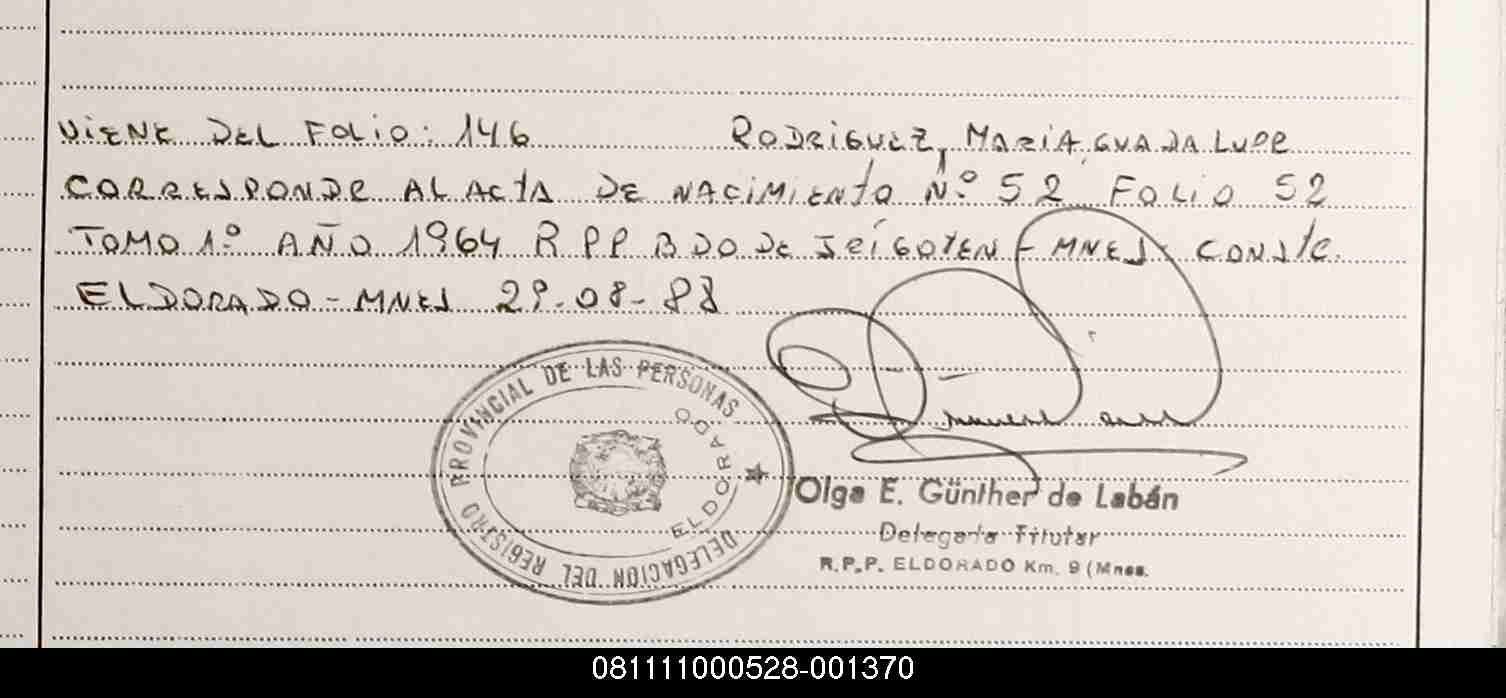 VIENE DEL FOLIO: 146 RODRIGUEZ, MARIA GUADALUPE
CORRESPONDE AL ACTA DE NACIMIENTO Nº 52 FOLIO 52
TOMO 1º AÑO 1964 R P P B DO DE IRIGOYEN - MNES. CONSTE.
ELDORADO - MNES 29-08-88
DELEGACION DEL REGISTRO PROVINCIAL DE LAS PERSONAS
ELDORADO
Olga E. Günther de Labán
Delegada Titular
R.P.P. ELDORADO Km. 9 (Mnes.
081111000528-001370